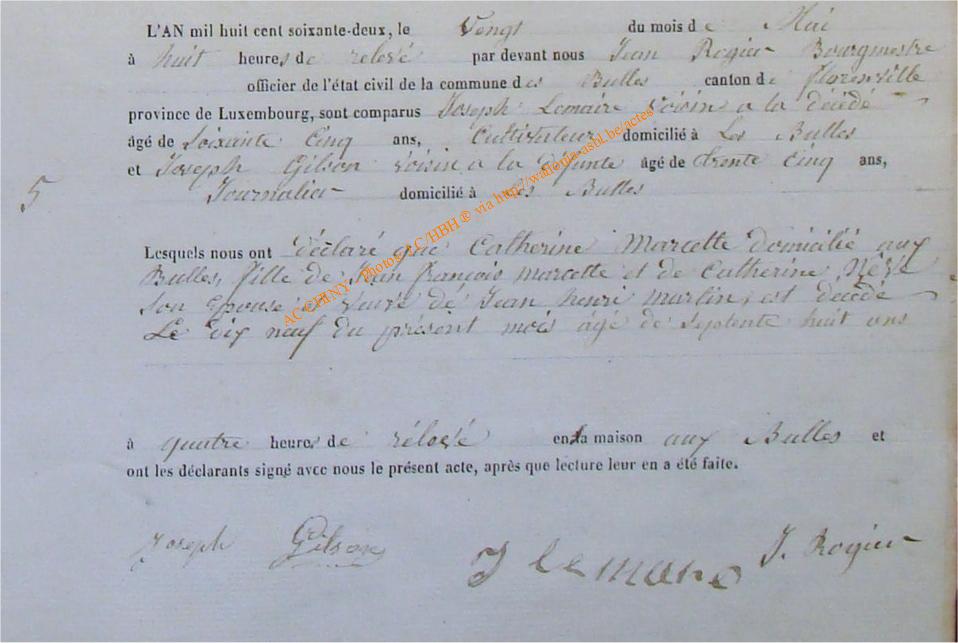 L'AN mil huit cent soixante-deux, le Vengt du mois de Mai
à huit heures de relevé par devant nous Jean Rogier Bourgmestre
officier de l'état civil de la commune des Bulles canton de florenville
province de Luxembourg, sont comparus Joseph Lemaire voisin a la décédé
âgé de Soixante Cinq ans, Cultivateur domicilié à Les Bulles
et Joseph Gilson voisin a la défunte âgé de trente Cinq ans,
Journalier domicilié à Les Bulles
5
Lesquels nous ont déclaré que Catherine Marcette domicilié aux
Bulles, fille de Jean françois marcette et de Catherine
son Epouse veuve de Jean henri martin, est décédé
Le dix neuf du présent mois âgé de septente huit ans
à quatre heures de rélevé en sa maison aux Bulles et
ont les déclarants signé avec nous le présent acte, après que lecture leur en a été faite.
Joseph Gilson J lemare J. Rogier
AC CHINY - Photos AC/HBH ® via http://wallonia-asbl.be/actes